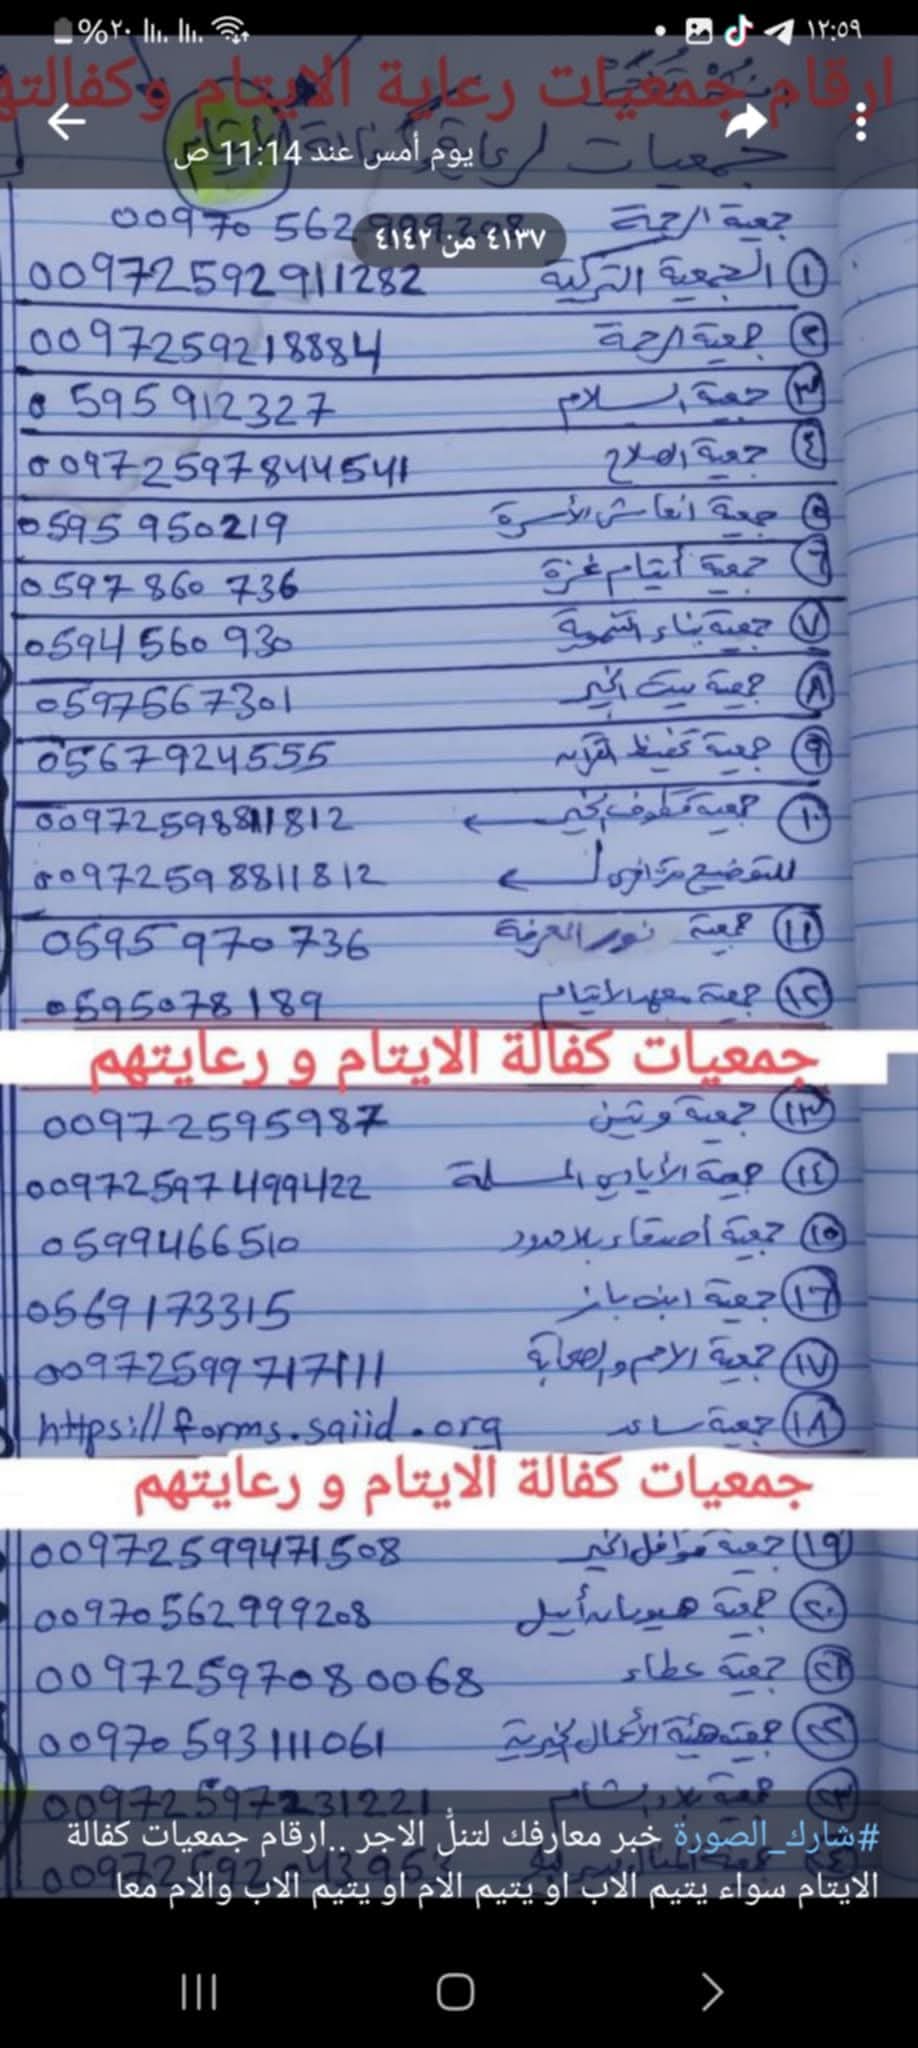 ١٢:٥٩
%٢٠
ارقام جمعيات رعاية الايتام وكفالته
جمعيات لرعاية الأيتام
يوم أمس عند 11:14 ص
جمعية الرحمة 00970 562999208
٤١٣٧ من ٤١٤٢
١ الجمعية التركية 00972592911282
٢ جمعية الرحمة 0097259218884
٣ جمعية السلام 0595912327
٤ جمعية الصلاح 00972597844541
٥ جمعية انعاش الأسرة 0595950219
٦ جمعية أيتام غزة 0597860736
٧ جمعية بناء التنموية 0594560930
٨ جمعية بيت الخير 0597567301
٩ جمعية تحفيظ القرآن 0567924555
١٠ جمعية قطوف الخير 00972598811812
للتوضيح مرة أخرى 00972598811812
١١ جمعية نور المعرفة 0595970736
١٢ جمعية معهد الأيتام 0595078189
جمعيات كفالة الايتام و رعايتهم
١٣ جمعية وتين 00972595987
١٤ جمعية الأيادي المسلمة 00972597499422
١٥ جمعية أصدقاء بلا حدود 0599466510
١٦ جمعية ابن باز 0569173315
١٧ جمعية الامم والصحابة 00972599717111
١٨ جمعية سائد https://forms.saiid.org
جمعيات كفالة الايتام و رعايتهم
١٩ جمعية قوافل الخير 00972599471508
٢٠ جمعية 00970562999208
٢١ جمعية عطاء 00972597080068
٢٢ جمعية هيئة الأعمال الخيرية 00970593111061
٢٣ جمعية بلاد الشام 00972597231221
#شارك_الصورة خبر معارفك لتنلُ الاجر ..ارقام جمعيات كفالة
الايتام سواء يتيم الاب او يتيم الام او يتيم الاب والام معا